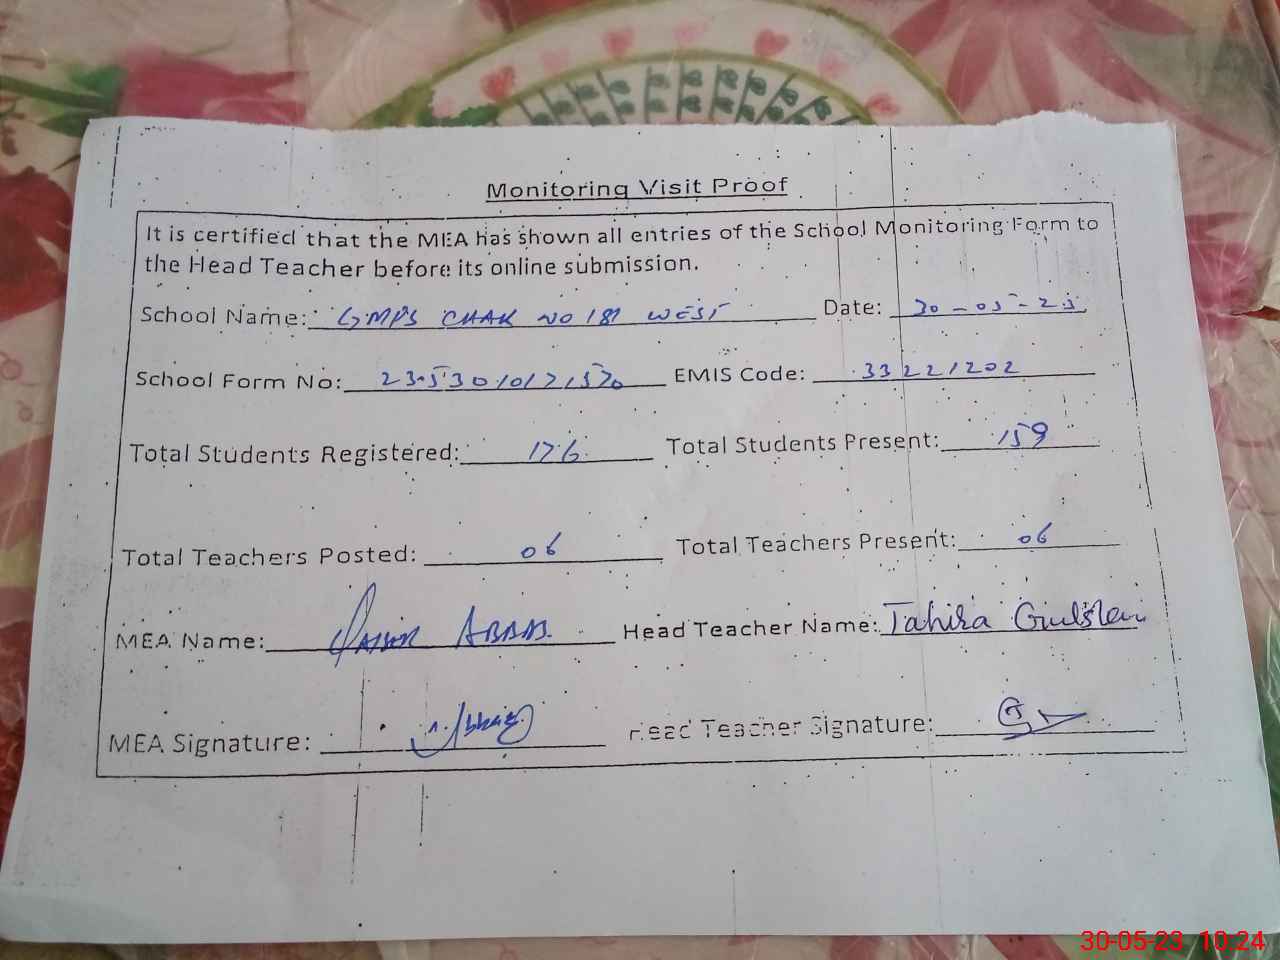 Monitoring Visit Proof
It is certified that the MEA has shown all entries of the School Monitoring Form to
the Head Teacher before its online submission.
School Name: GMPS CHAK NO 181 WEST Date: 30-05-23
School Form No: EMIS Code: 33221202
Total Students Registered: 176 Total Students Present: 159
Total Teachers Posted: 06 Total Teachers Present: 06
MEA Name: Qaisor ABBAS Head Teacher Name: Tahira
MEA Signature: Head Teacher Signature:
30-05-23 10:24